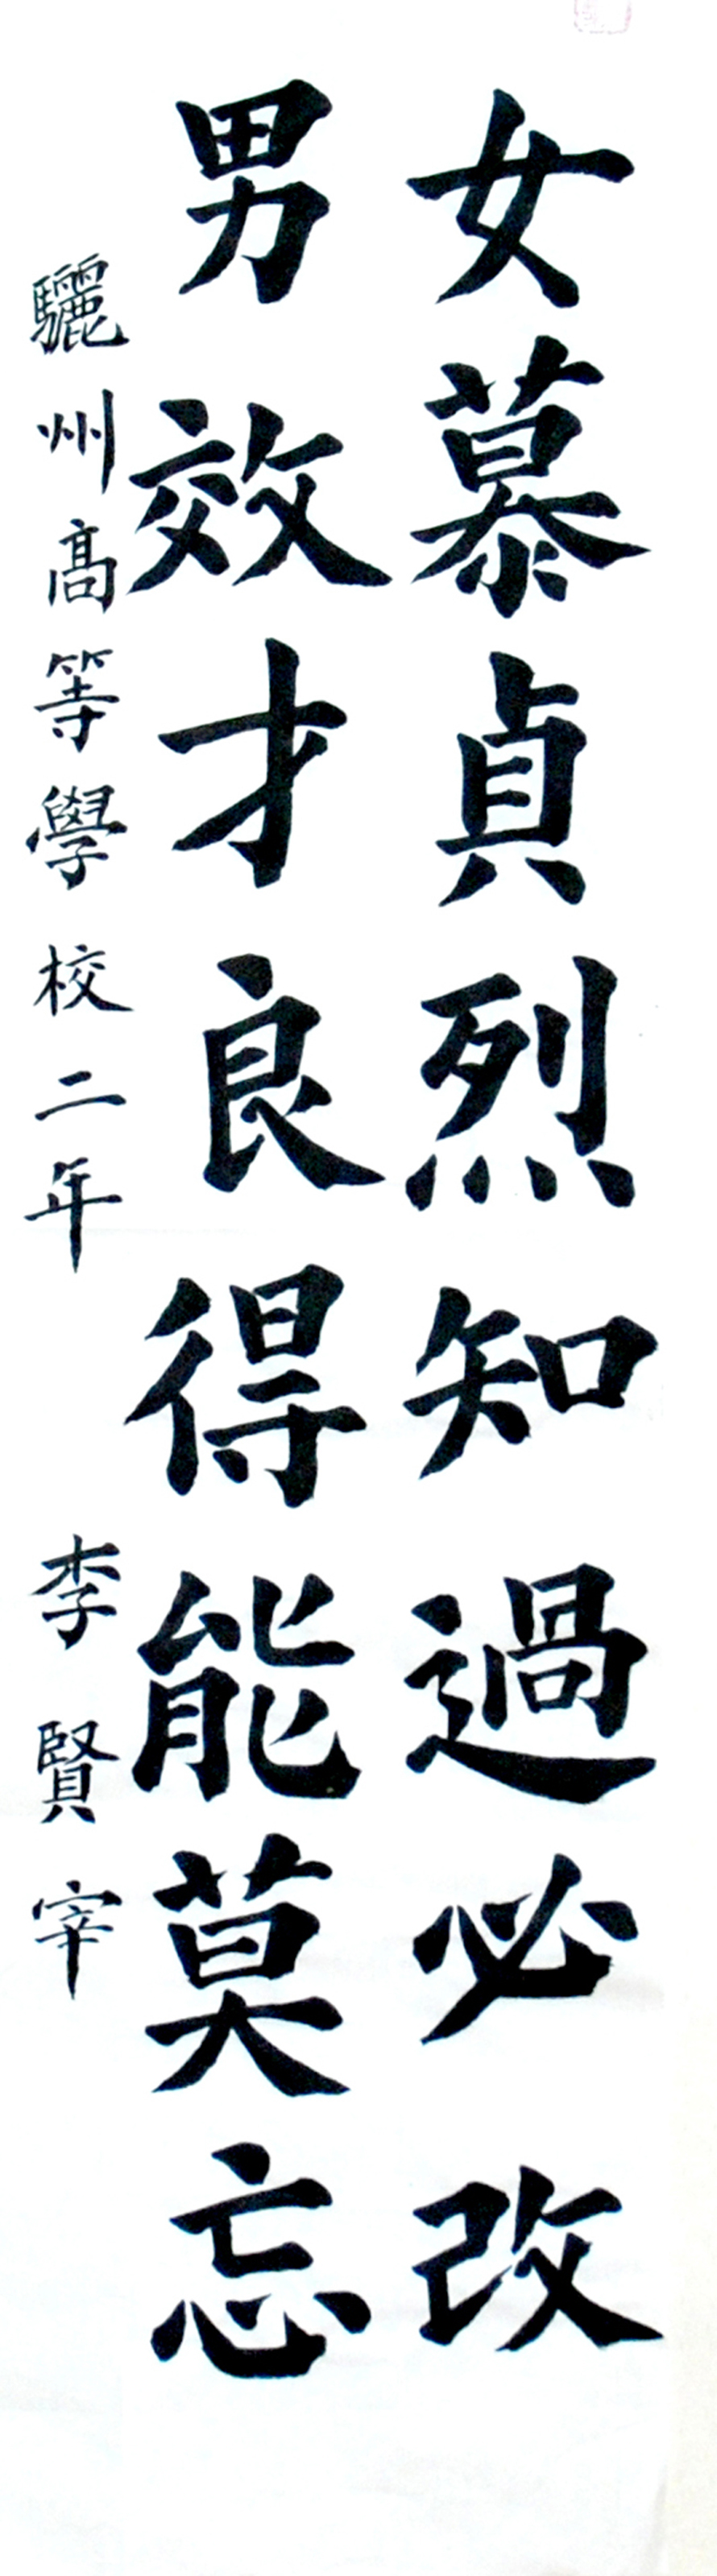 女慕貞烈知過必改
男效才良得能莫忘
驪州高等學校二年 李賢宰